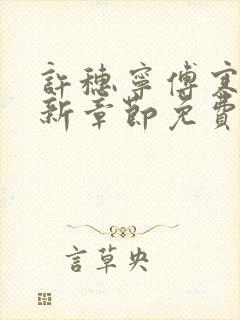 許穗寧傅寒
新章節免費
言草央